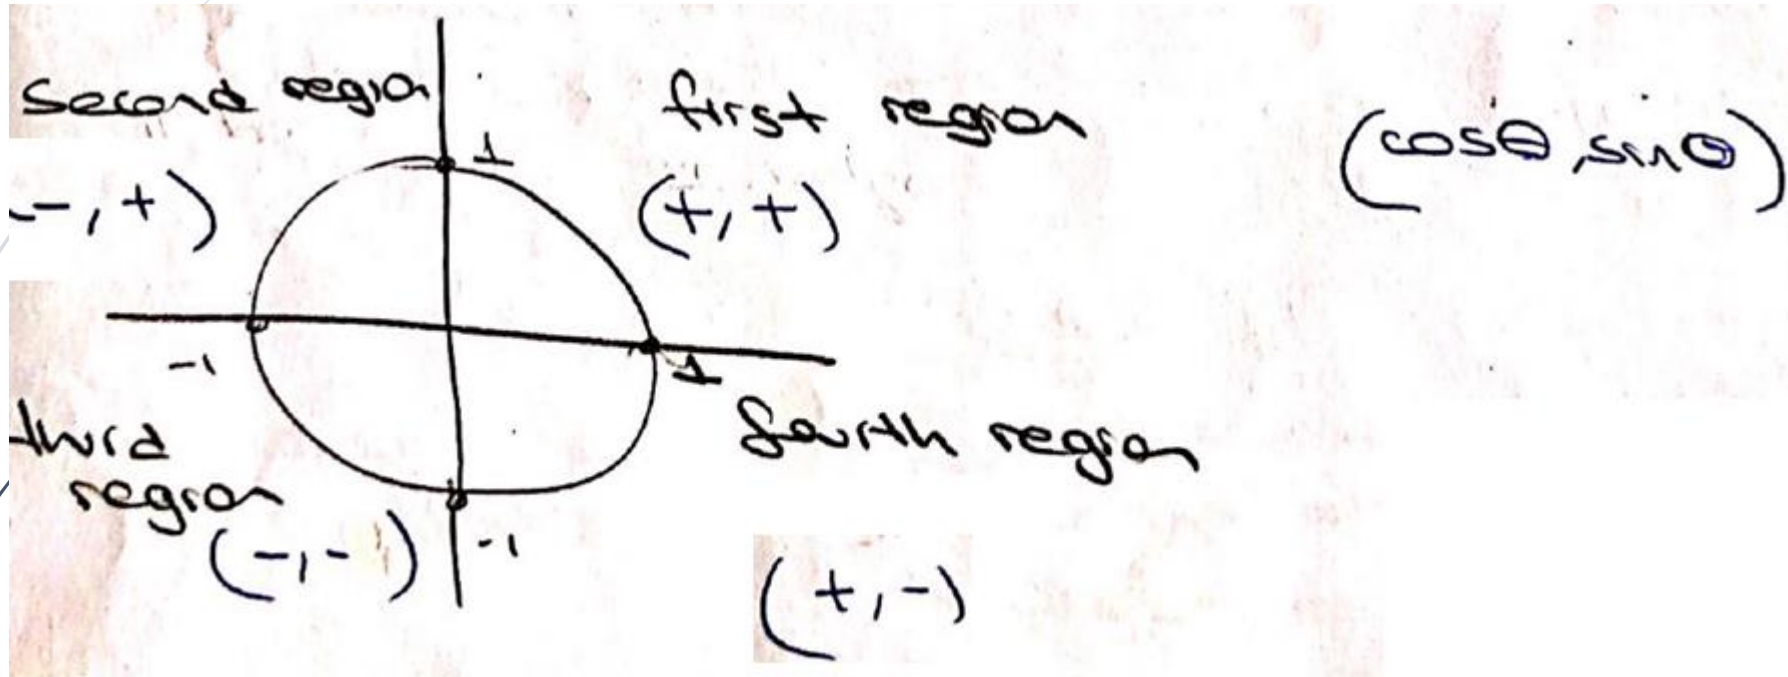 second region
first region
(cosθ, sinθ)
1
-, +)
(+, +)
-1
1
third
region
fourth region
(-, -)
-1
(+, -)